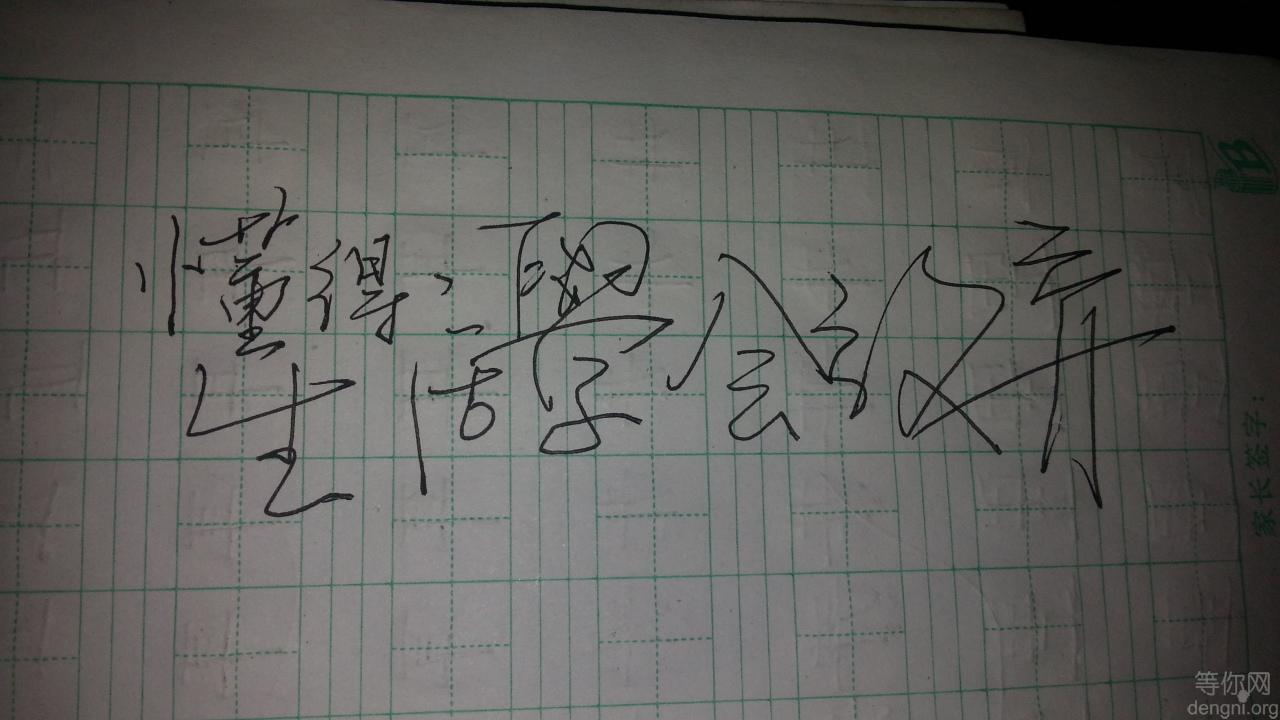 懂得
生活
學会放弃
家长签字：
等你网
dengni.org